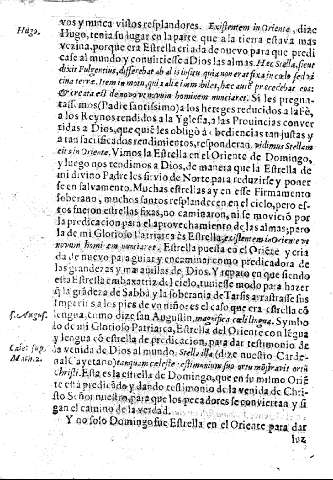 vos y nunca vistos resplandores. Existentem in Oriente, dize
Hugo.
Hugo, tenia su lugar en la parte que a la tierra estava mas
vezina, porque era Estrella criada de nuevo para que predi
case al mundo y convirtiesse a Dios las almas. Hec Stella, sient
dixit Fulgentius, differebat ab alijs in situ quia non erat fixa in celo sed vi
cina terræ. Item in motu, quia aliæ immobiles, hæc autē præcedebat eos:
& creata est de novo ut novum hominem nunciaret. Si les pregun-
tassemos (Padre santissimo) a los hereges reducidos a la Fè,
a los Reynos rendidos a la Yglesia, a las Provincias conver
tidas a Dios, que quiē les obligò à obediencias tan justas y
a tan sacrificadas rendimientos, responderan. vidimus Stellam
eius in Oriente. Vimos la Estrella en el Oriente de Domingo,
y luego nos rendimos a Dios, de manera que la Estrella de
mi divino Padre les sirvio de Norte para reduzirse y poner
se en salvamento. Muchas estrellas ay en esse Firmamento
soberano, muchos santos resplandecen en el cielo, pero es-
tos fueron estrellas fixas, no caminaron, ni se moviò por
la predicacion para el aprovechamiento de las almas; pero
la de mi Glorioso Patriarca es Estrella existentem in Oriente ut
novum hominem nunciaret. Estrella puesta en el Oriēte y cria
da de nuevo para guiar y encaminar como predicadora de
las grandezas y maravillas de Dios. Y reparo en que siendo
esta Estrella embaxatriz del cielo, tuviesse modo para hazer
q̄ la grādeza de Sabbà y la soberania de Tarsis arrastrasse sus
Imperios a los pies de vn niño: es el caso que era estrella cō
S. Augus.
lengua, como dize san Augustin, magnifica cæli lingua. Symbo
lo de mi Glorioso Patriarca, Estrella del Oriente con lēgua
y lengua cō estrella de predicacion, para dar testimonio de
la venida de Dios al mundo. Stella illa (dize nuestro Carde-
Caiet. sup.
Math. 2.
nal Cayetano) tanquam celeste testimonium suo ortu mōstravit ortū
Christi. Esta es la estrella de Domingo, que en su mismo Oriē
te està predicādo y dando testimonio de la venida de Chri-
sto Señor nuestro, para que los pecadores se conviertan y si
gan el camino de la verdad.
Y no solo Domingo fue Estrella en el Oriente para dar
luz